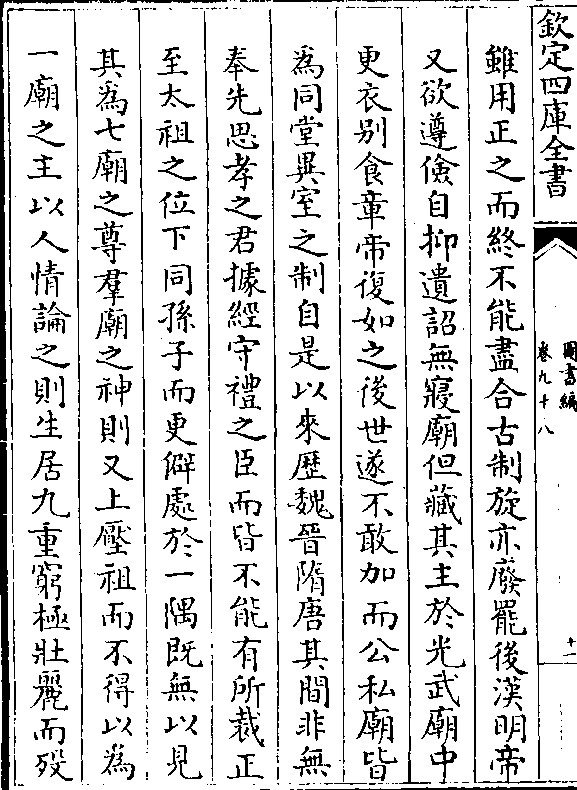 欽定四庫全書
圖書編
卷九十八
十一
雖用正之而終不能盡合古制旋亦廢罷後漢明帝
又欲遵儉自抑遺詔無寢廟但藏其主於光武廟中
更衣别食章帝復如之後世遂不敢加而公私廟皆
為同堂異室之制自是以來歴魏晉隋唐其間非無
奉先思孝之君據經守禮之臣而皆不能有所裁正
至太祖之位下同孫子而更僻處於一隅既無以見
其為七廟之尊羣廟之神則又上壓祖而不得以為
一廟之主以人情論之則生居九重窮極壯麗而殁